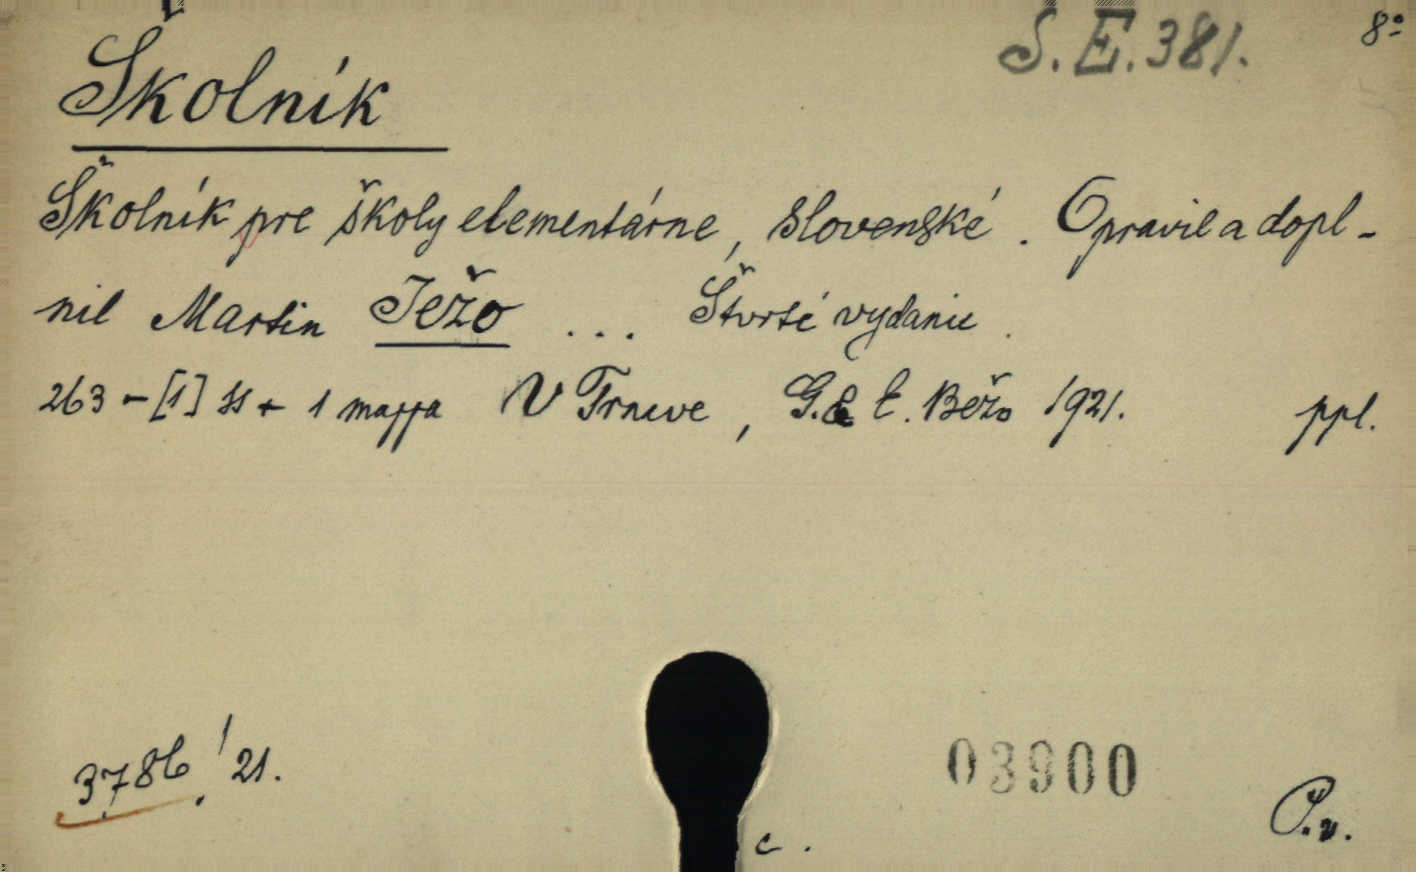 Školník
S.E.381.
8°
Školník pre školy elementárne, slovenské. Opravil a dopl-
nil Martin Ježo ... Štvrté vydanie.
263 - [1] ss + 1 mappa V Trnave, G. & E. Bežo 1921. ppl.
3786/21.
03900
c.
P.v.